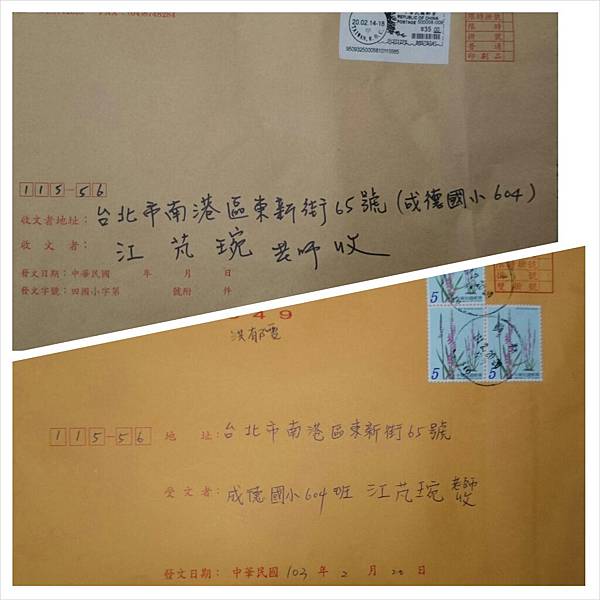 20.02.14-18
TAIWAN, R.O.C.
REPUBLIC OF CHINA
POSTAGE
限時掛號
限時
掛號
普通
印刷品
115-56
收文者地址：台北市南港區東新街65號(成德國小604)
收文者：江芃琬老師收
發文日期：中華民國 年 月 日
發文字號：四國小字第 號附 件
5
5
5
949
115-56 地 址：台北市南港區東新街65號
受文者：成德國小604班 江芃琬老師收
發文日期： 中華民國103年2月20日